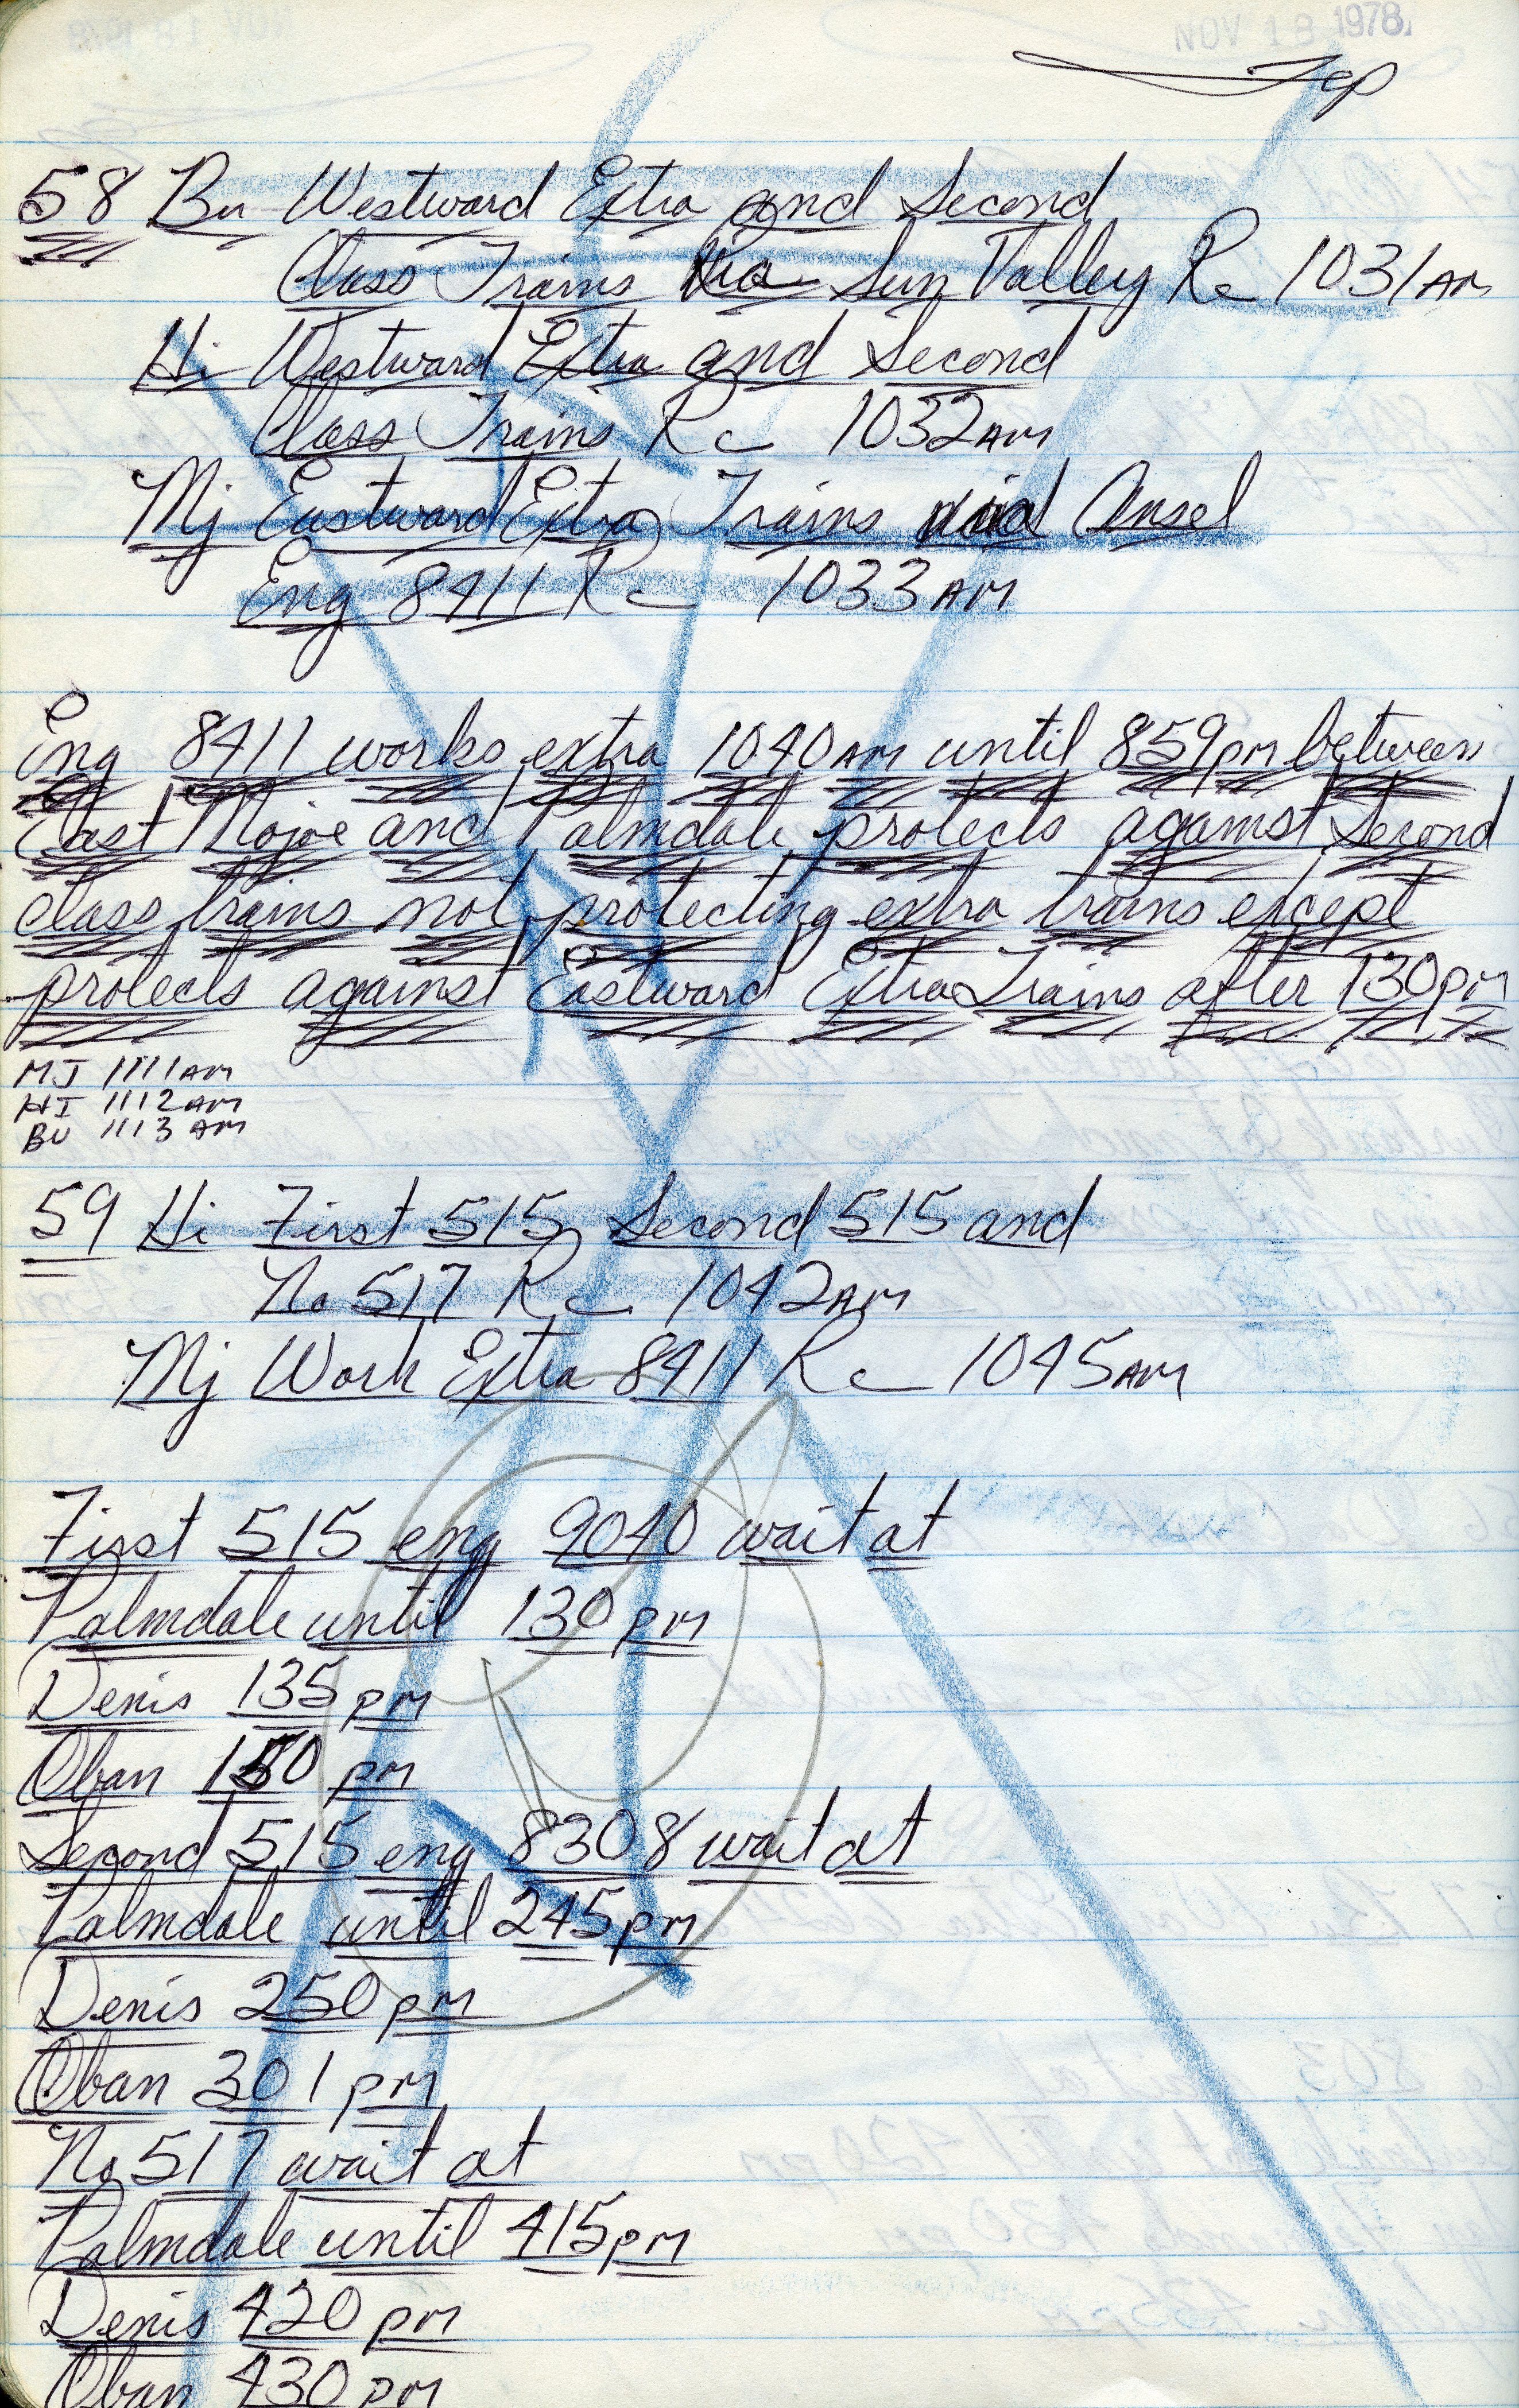 NOV 18 1978
Jep
58 Bu Westward Extra and Second
Class Trains Via Sun Valley Rc 1031AM
Hi Westward Extra and Second
Class Trains Rc 1032AM
Mj Eastward Extra Trains via Ansel
Eng 8411 Rc 1033AM
Eng 8411 works extra 1040AM until 859PM between
East Mojve and Palmdale protects against Second
class trains not protecting extra trains except
protects against Eastward Extra Trains after 130PM
MJ 1111AM
HI 1112AM
BU 1113AM
59 Hi First 515 Second 515 and
No 517 Rc 1042AM
Mj Work Extra 8411 Rc 1045AM
First 515 eng 9040 wait at
Palmdale until 130PM
Denis 135PM
Oban 150PM
Second 515 eng 8308 wait at
Palmdale until 245PM
Denis 250PM
Oban 301PM
No 517 wait at
Palmdale until 415PM
Denis 420PM
Oban 430PM